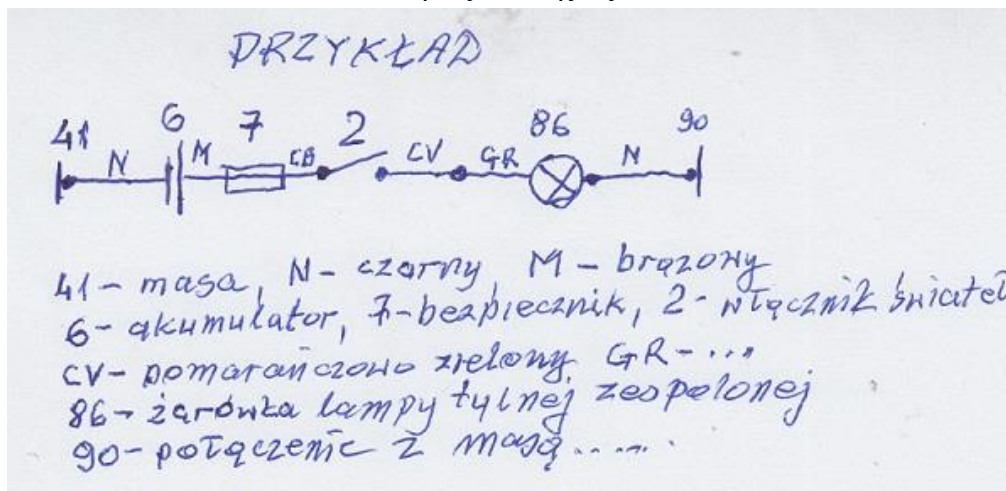 PRZYKŁAD
41 6 7 2 86 90
N M CB CV GR N
41 - masa, N - czarny, M - brązowy
6 - akumulator, 7 - bezpiecznik, 2 - włącznik świateł
CV - pomarańczowo zielony, GR - ...
86 - żarówka lampy tylnej zespolonej
90 - połączenie z masą.....